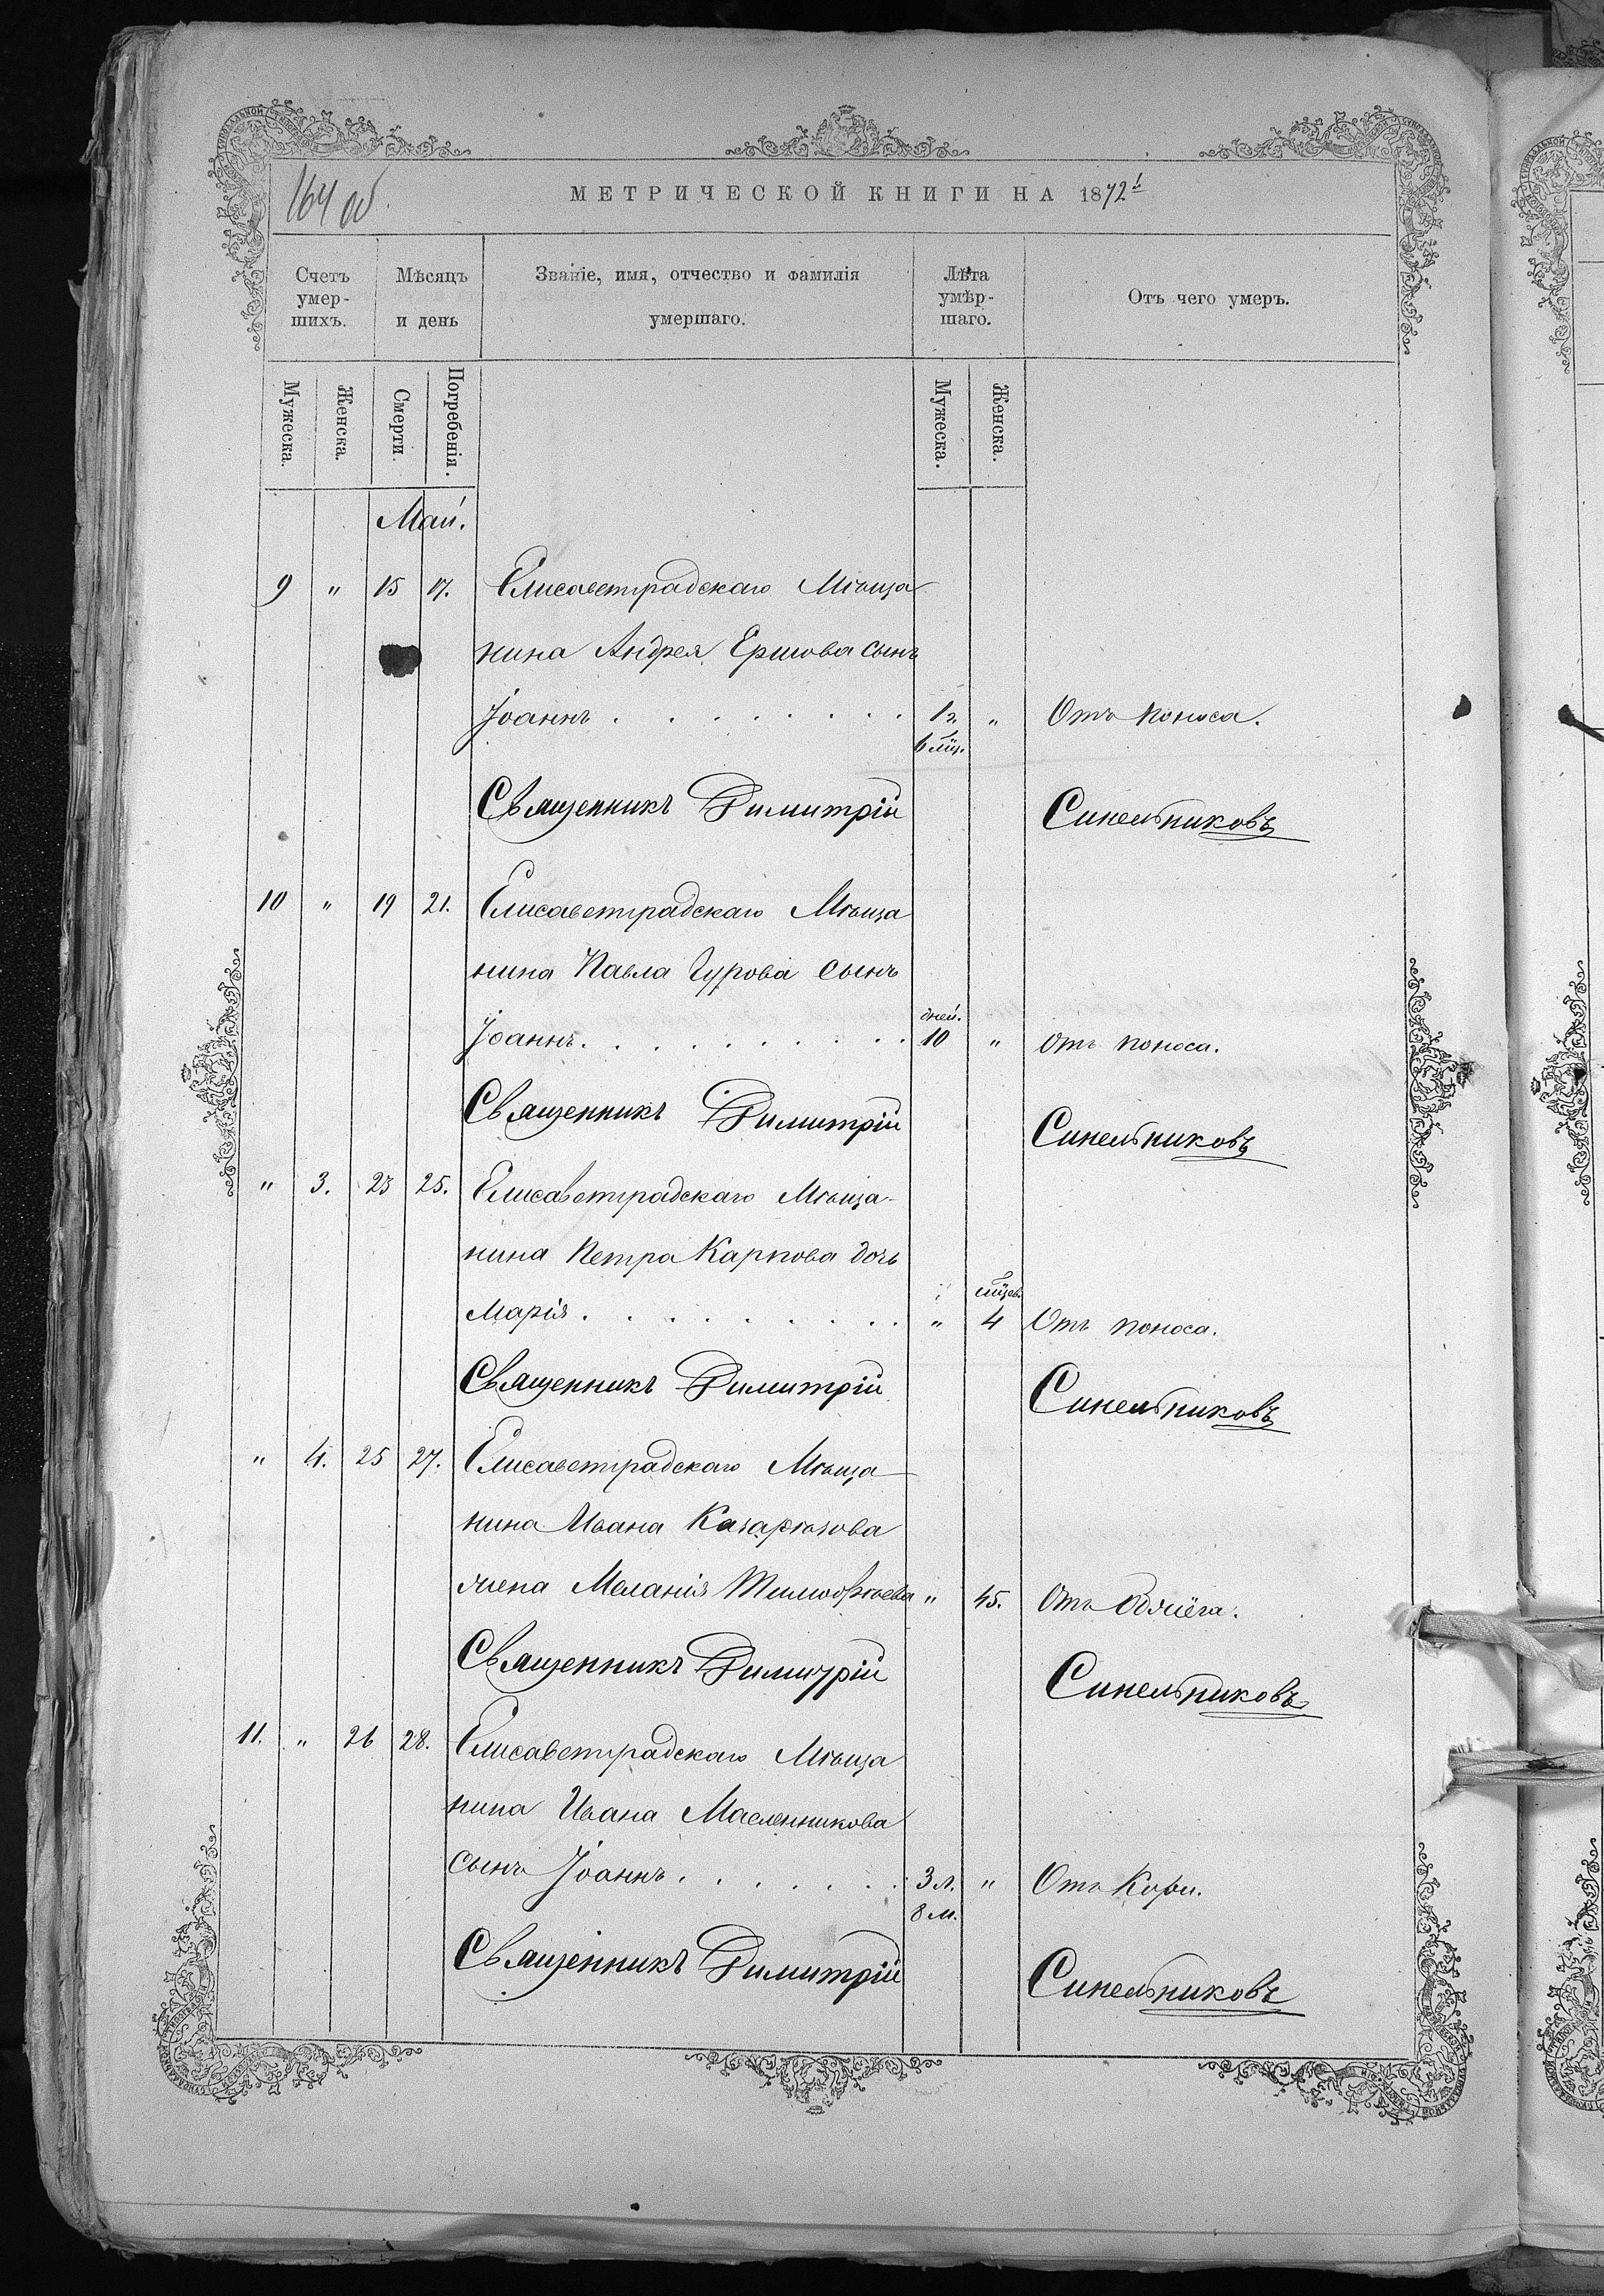 164 об.
МЕТРИЧЕСКОЙ КНИГИ НА 1872
Счетъ умер-шихъ.
Мѣсяцъ и день
Званіе, имя, отчество и фамилія умершаго.
Лѣта умѣр-шаго.
Отъ чего умеръ.
Мужеска.
Женска.
Смерти.
Погребенія.
Мужеска.
Женска.
Май.
9 " 15 17. Елисаветградскаго Мѣща
нина Андрея Ершова сынъ
Іоаннъ . . . . . . . . 1 г. " Отъ поноса.
6 мц.
Священникъ Димитрій Синельниковъ
10 " 19 21. Елисаветградскаго Мѣща
нина Павла Гурова сынъ
дней.
Іоаннъ . . . . . . . . 10 " Отъ поноса.
Священникъ Димитрій Синельниковъ
" 3. 23 25. Елисаветградскаго Мѣща-
нина Петра Карпова дочь
мцев.
Марія . . . . . . . . " 4 Отъ поноса.
Священникъ Димитрій Синельниковъ
" 4. 25 27. Елисаветградскаго Мѣща
нина Ивана
жена Меланія Тимофѣева " 45. Отъ
Священникъ Димитрій Синельниковъ
11. " 26 28. Елисаветградскаго Мѣща
нина Ивана Масленникова
сынъ Іоаннъ . . . . . . 3 л. " Отъ Кори.
8 м.
Священникъ Димитрій Синельниковъ